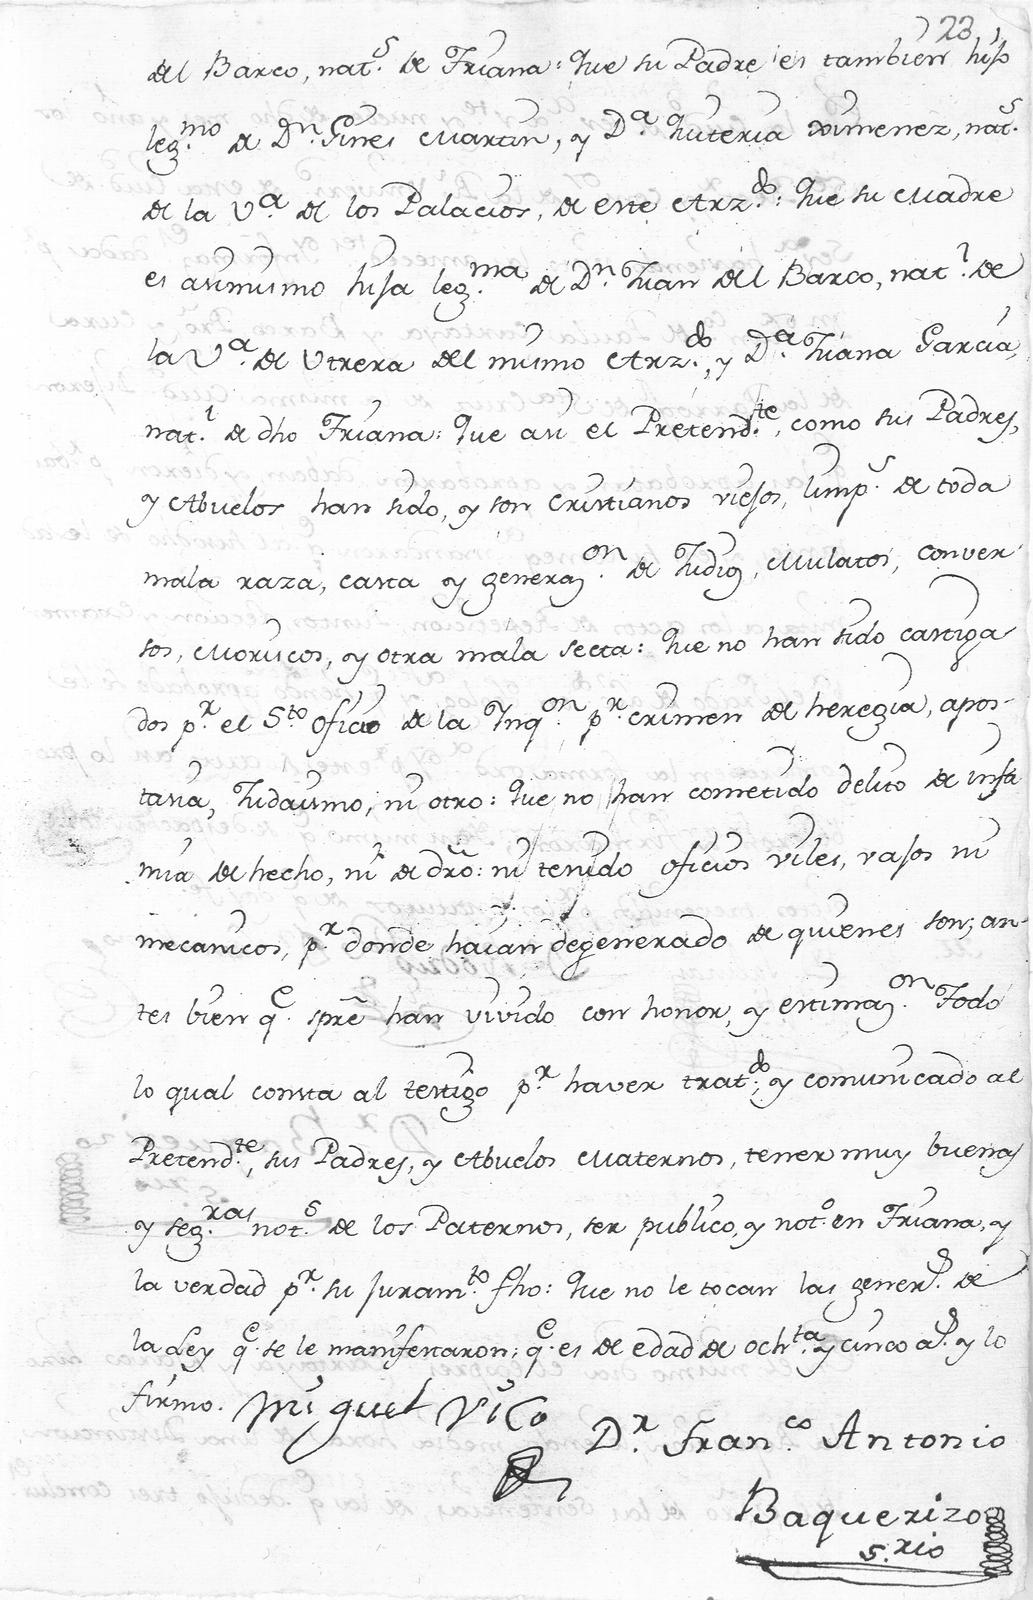 23
del Barco, nat.s de Triana: Que su Padre es tambien hijo
leg.mo de D.n Gines Martin, y D.a Quiteria Ximenez, nat.s
de la V.a de los Palacios, de este Arz.do: Que su Madre
es asimismo hija leg.ma de D.n Juan del Barco, nat.l de
la V.a de Utrera del mismo Arz.do, y D.a Juana Garcia,
nat.l de dho Triana: Que asi el Pretend.te, como sus Padres,
y Abuelos han sido, y son Cristianos viejos, limp.s de toda
mala raza, casta y generaz.on de Judios, Mulatos, conver
sos, Moriscos, y otra mala secta: Que no han sido castiga
dos p.r el S.to Oficio de la Inq.on p.r crimen de heregia, apos-
tasia, Judaismo, ni otro: Que no han cometido delito de infa
mia de hecho, ni de dro: ni tenido oficios viles, vajos ni
mecanicos, p.r donde haian degenerado de quienes son; an-
tes bien q.e spre han vivido con honor, y estimaz.on Todo
lo qual consta al testigo p.r haver trat.do, y comunicado al
Pretend.te, sus Padres, y Abuelos Maternos, tener muy buenas
y seg.ras not.s de los Paternos, ser publico, y not.o en Triana, y
la verdad p.r su juram.to fho: Que no le tocan las gener.s de
la Ley q.e se le manifestaron; q.e es de edad de och.ta y cinco a.s y lo
firmo. Miguel Vico
D.r Fran.co Antonio
Baquerizo
S.rio